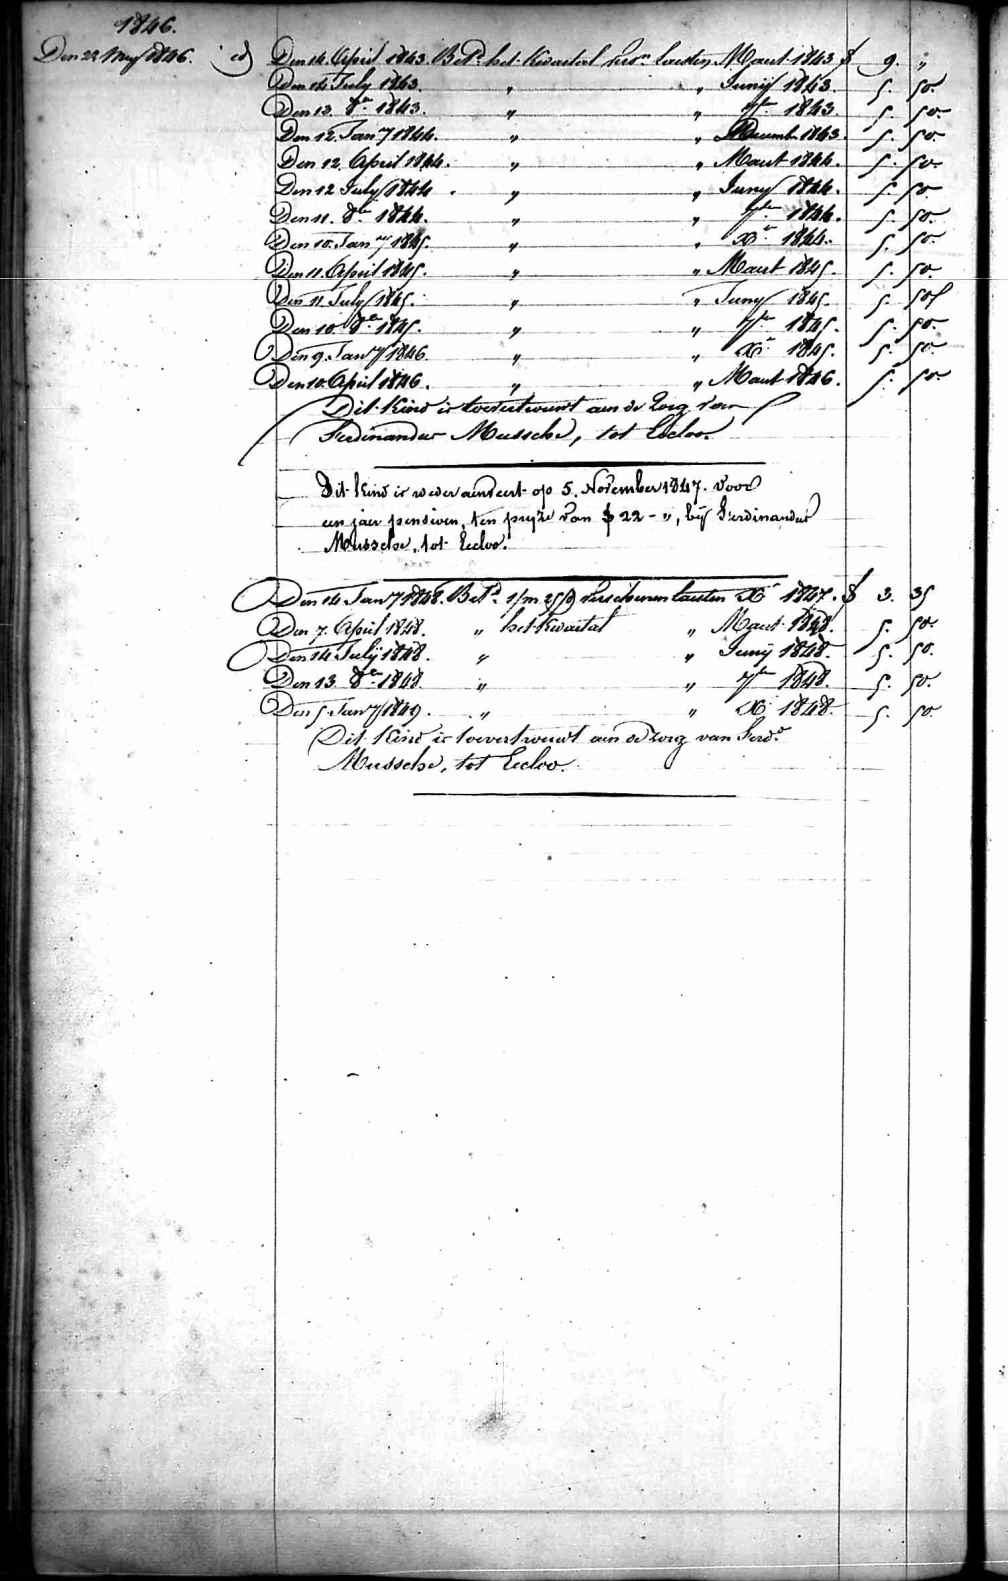 1846.
Den 22 Mey 1846. d) Den 14. April 1843. Betd. het Kwartal laesten Maert 1843 $ 9. "
Den 14 July 1843. " " Junij 1843. 5. 50.
Den 13. 8re 1843. " " 7re 1843 5. 50.
Den 12. Jany 1844. " " Decemb. 1843. 5. 50.
Den 12. April 1844. " " Maert 1844. 5. 50.
Den 12 July 1844. " " Juny 1844. 5. 50
Den 11. 8re 1844. " " 7re 1844. 5. 50.
Den 10. Jany 1845. " " Xr 1844. 5. 50.
Den 11. April 1845. " " Maert 1845. 5. 50.
Den 11 July 1845. " " Juny 1845. 5. 50
Den 10. 8re 1845. " " 7re 1845. 5. 50.
Den 9. Jany 1846 " " Xr 1845. 5. 50.
Den 10. April 1846. " " Maert 1846. 5. 50.
Dit Kind is toevertrouwt aen de Zorg van
Ferdinandus Mussche, tot Eecloo.
Dit Kind is weder aenveert op 5. November 1847. voor
een jaer pensioen, ten pryze van $ 22 - ", bij Ferdinandus
Mussche, tot Eecloo.
Den 14 Jany 1848. Betd. 1/m 25/d verschenen laesten Xr 1847. $ 3. 35
Den 7. April 1848. " het Kwartal " Maert 1848. 5. 50.
Den 14 July 1848. " " Junij 1848. 5. 50.
Den 13. 8re 1848. " " 7re 1848. 5. 50.
Den 5 Jany 1849. " " Xr 1848. 5. 50.
Dit Kind is toevertrouwt aen de Zorg van Ferdo.
Mussche, tot Eecloo.